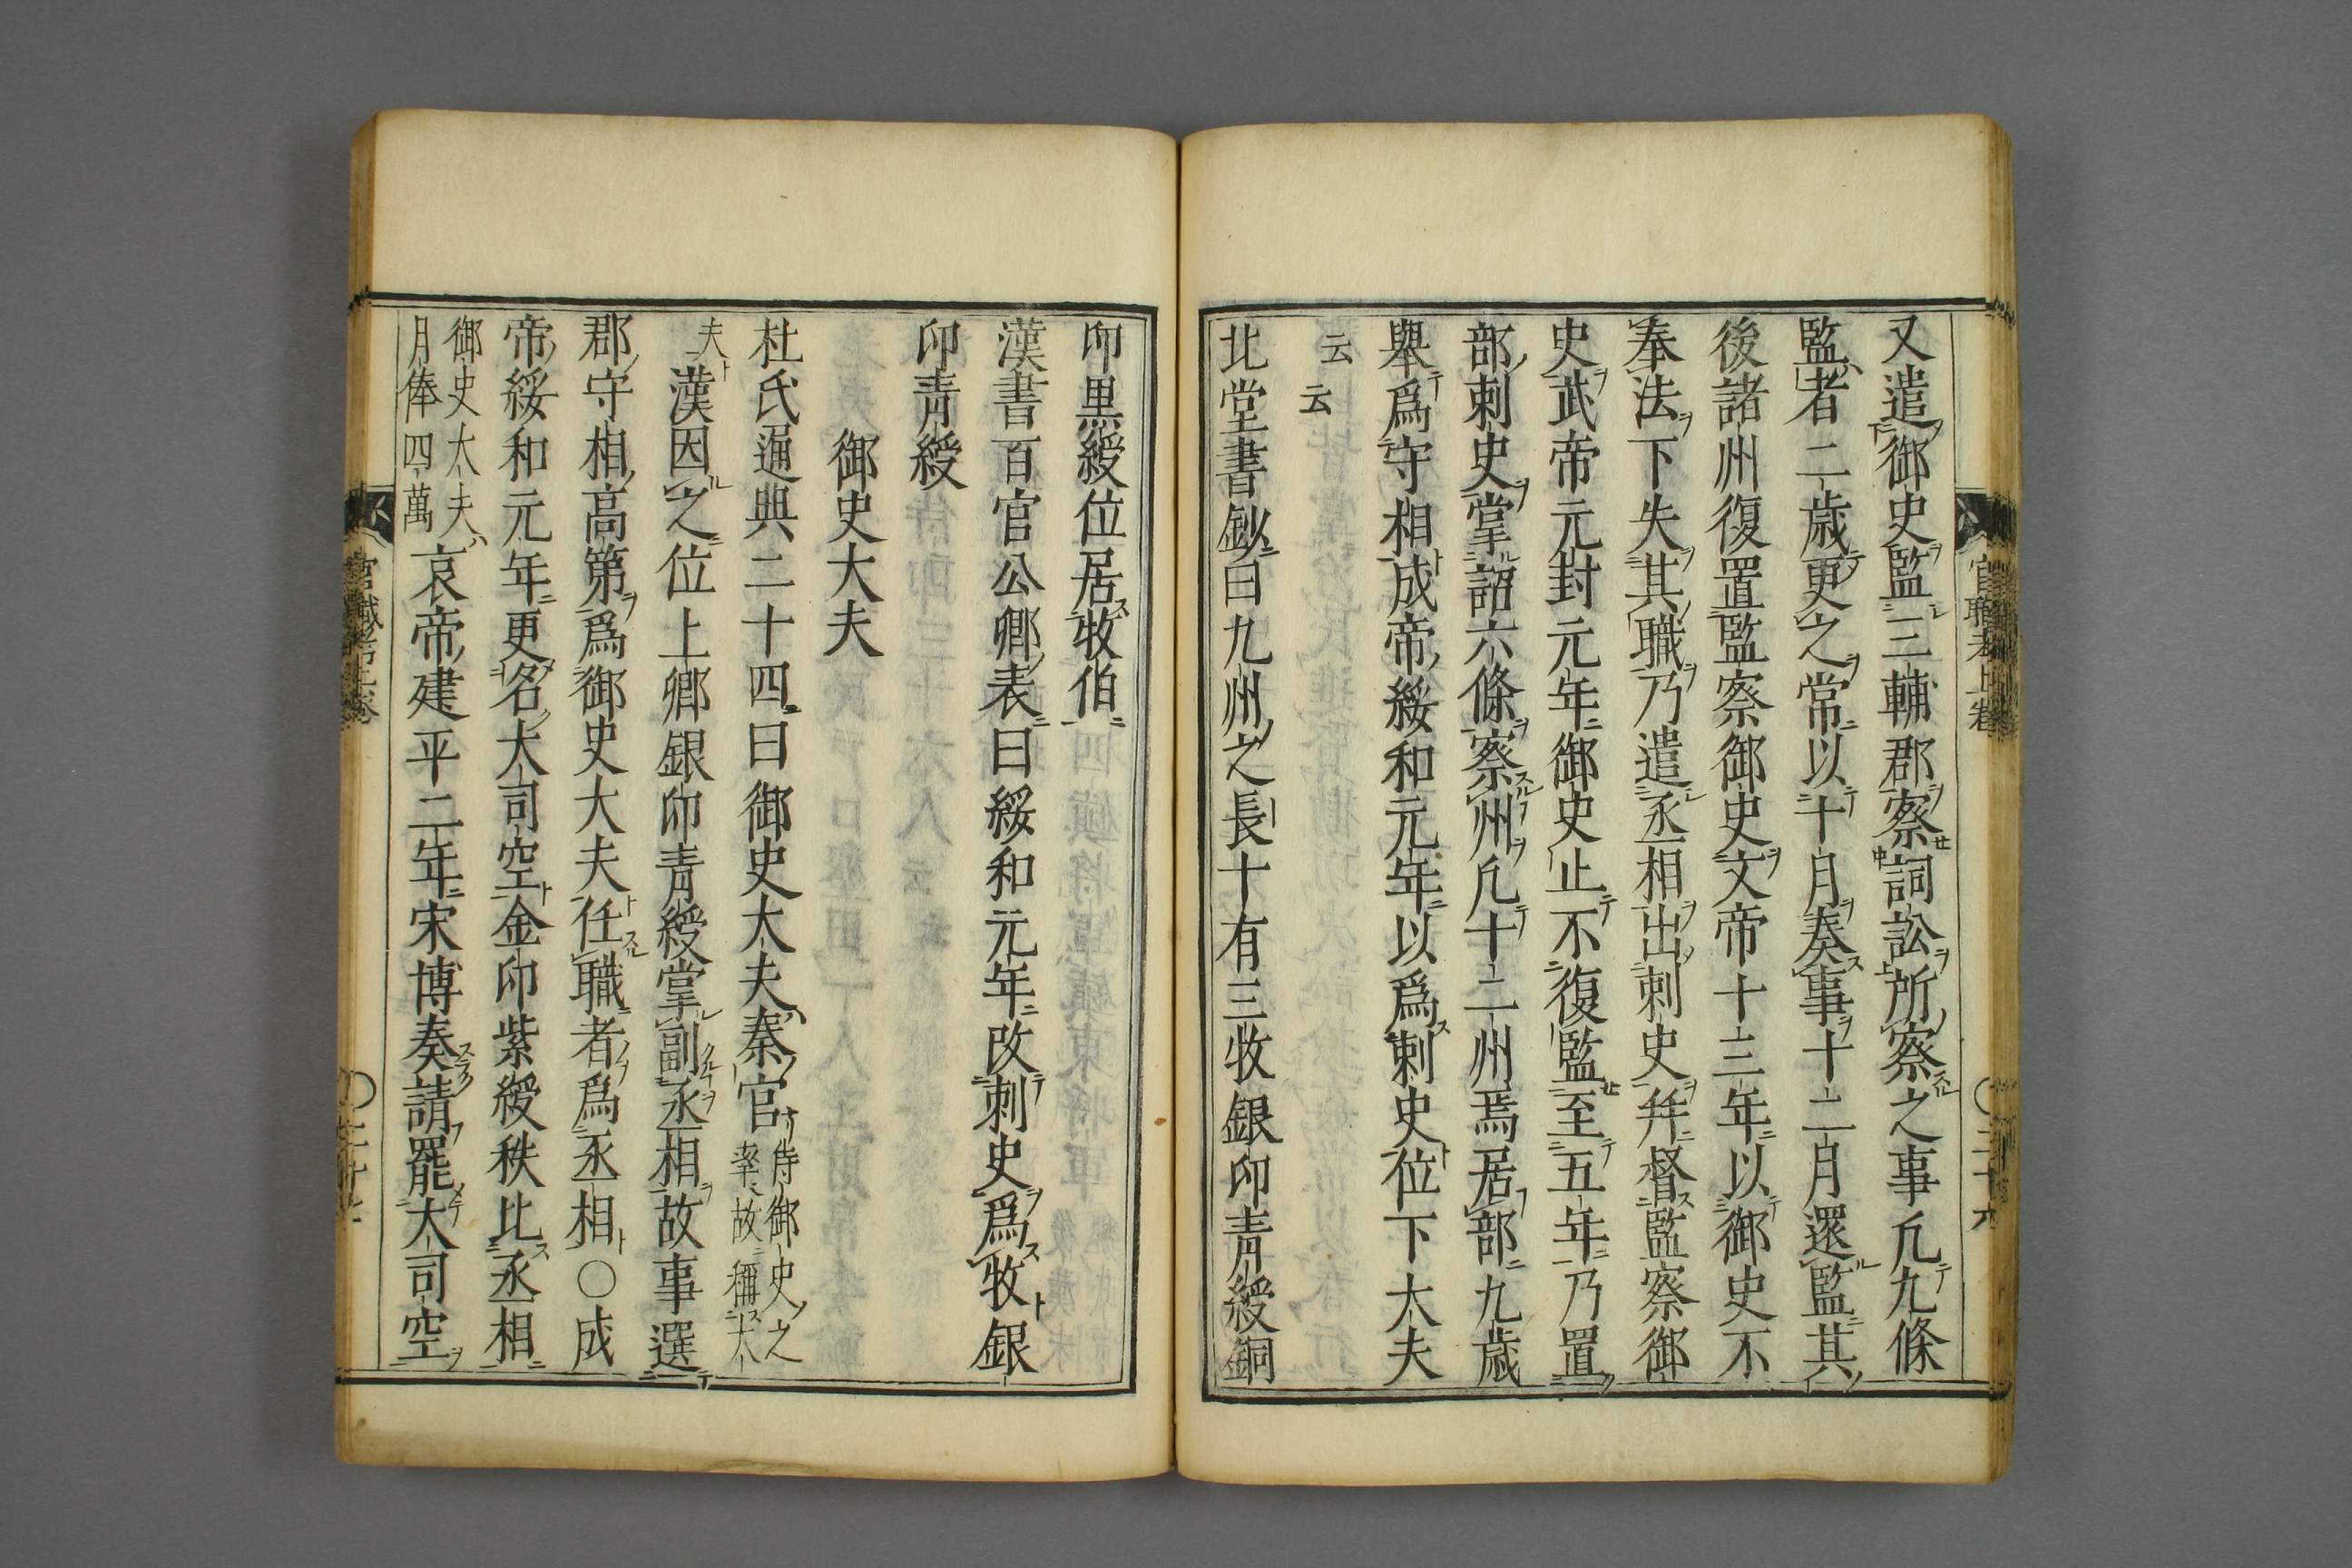 又遣御史監三輔郡察詞訟所察之事凡九條
監者二歳更之常以十月奏事十二月還監其
後諸州復置監察御史文帝十三年以御史不
奉法下失其職乃遣丞相出刺史幷督監察御
史武帝元封元年御史止不復監至五年乃置
部刺史掌詔六條察州凡十二州焉居部九歳
舉爲守相成帝綏和元年以爲刺史位下大夫
云云
北堂書鈔曰九州之長十有三牧銀印青綬銅
印黒綬位居牧伯
漢書百官公卿表曰綏和元年改刺史爲牧銀
印青綬
御史大夫
杜氏通典二十四曰御史大夫秦官侍御史之率故稱大
夫漢因之位上卿銀印青綬掌副丞相故事選
郡守相高第爲御史大夫任職者爲丞相〇成
帝綏和元年更名大司空金印紫綬秩比丞相
御史大夫月俸四萬哀帝建平二年宋博奏請罷大司空